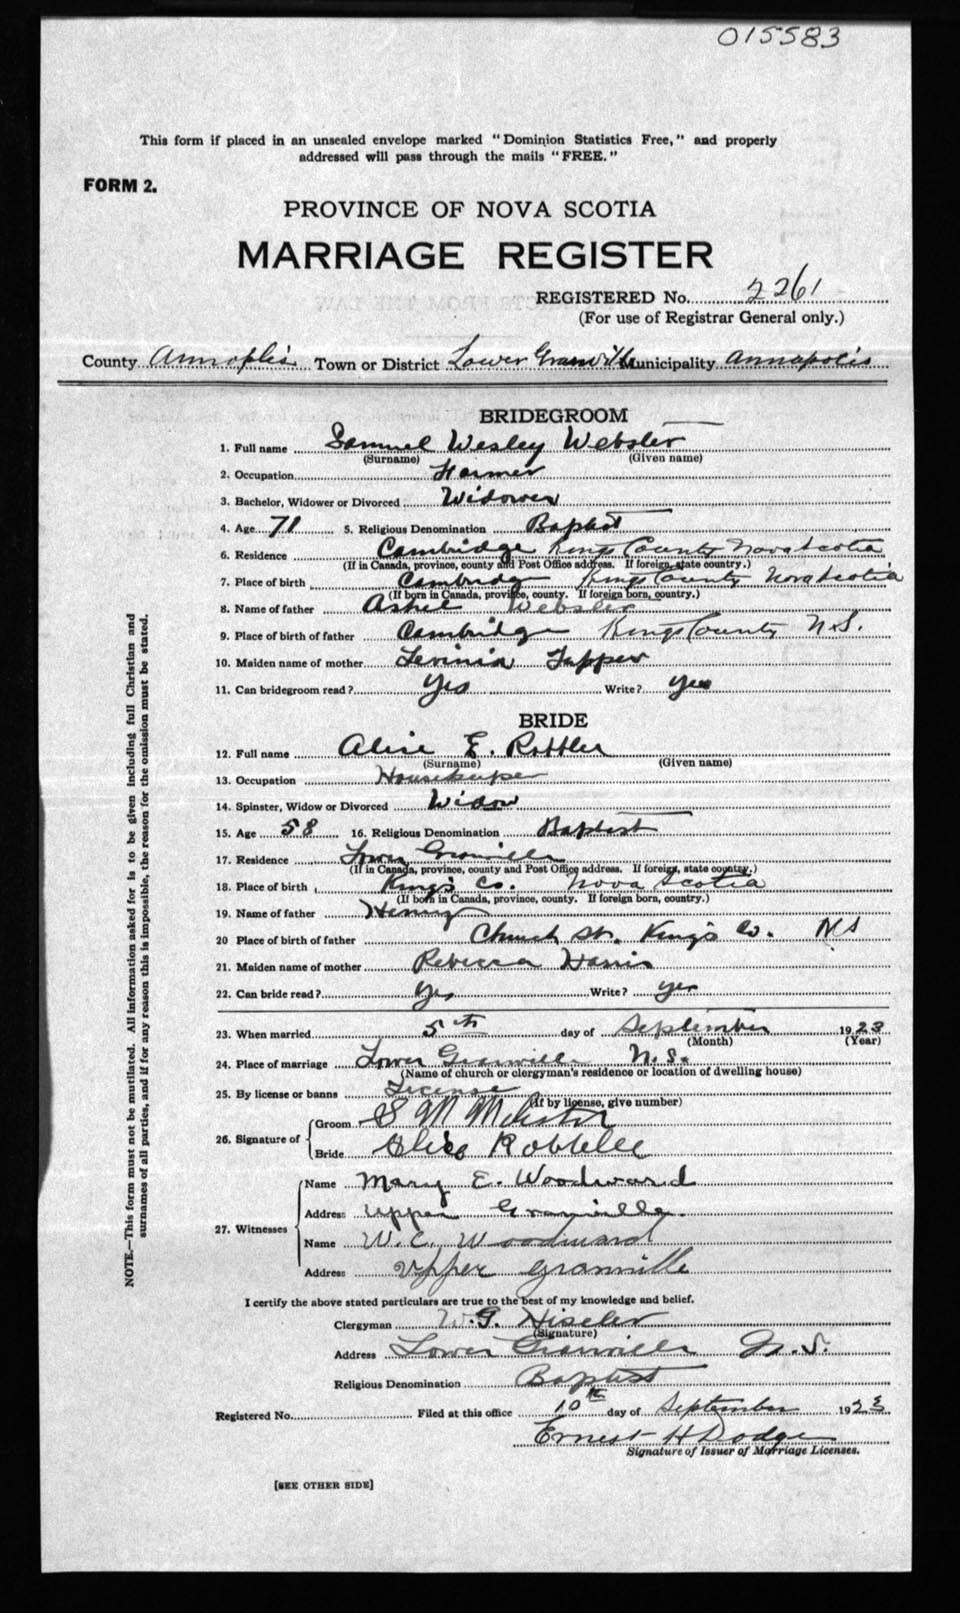 015583
This form if placed in an unsealed envelope marked "Dominion Statistics Free," and properly
addressed will pass through the mails "FREE."
FORM 2.
PROVINCE OF NOVA SCOTIA
MARRIAGE REGISTER
REGISTERED No. 2261
(For use of Registrar General only.)
County Annoplis Town or District Lower Granville Municipality Annapolis
BRIDEGROOM
1. Full name Samuel Wesley Webster
(Surname) (Given name)
2. Occupation Farmer
3. Bachelor, Widower or Divorced Widower
4. Age 71 5. Religious Denomination Baptist
6. Residence Cambridge Kings County Nova Scotia
(If in Canada, province, county and Post Office address. If foreign, state country.)
7. Place of birth Cambridge Kings County Nova Scotia
(If born in Canada, province, county. If foreign born, country.)
8. Name of father Ashel Webster
9. Place of birth of father Cambridge Kings County N.S.
10. Maiden name of mother Levinia Tupper
11. Can bridegroom read? Yes Write? yes
BRIDE
12. Full name Alice E.
(Surname) (Given name)
13. Occupation Housekeeper
14. Spinster, Widow or Divorced Widow
15. Age 58 16. Religious Denomination Baptist
17. Residence Lower Granville
(If in Canada, province, county and Post Office address. If foreign, state country.)
18. Place of birth King's Co. Nova Scotia
(If born in Canada, province, county. If foreign born, country.)
19. Name of father Henry
20 Place of birth of father Church St. King's Co. N S
21. Maiden name of mother Rebecca Harris
22. Can bride read? yes Write? yes
23. When married 5th day of September 1923
(Month) (Year)
24. Place of marriage Lower Granville N.S.
(Name of church or clergyman's residence or location of dwelling house)
25. By license or banns License
(If by license, give number)
26. Signature of Groom S W Webster
Bride Alice
27. Witnesses
Name Mary E. Woodward
Address Upper Granville.
Name W. C. Woodward
Address Upper Granville
I certify the above stated particulars are true to the best of my knowledge and belief.
Clergyman W. G.
(Signature)
Address Lower Granville N. S.
Religious Denomination Baptist
Registered No. Filed at this office 10th day of September 1923
Ernest H Dodge
Signature of Issuer of Marriage Licenses.
[SEE OTHER SIDE]
NOTE.—This form must not be mutilated. All information asked for is to be given including full Christian and
surnames of all parties, and if for any reason this is impossible, the reason for the omission must be stated.